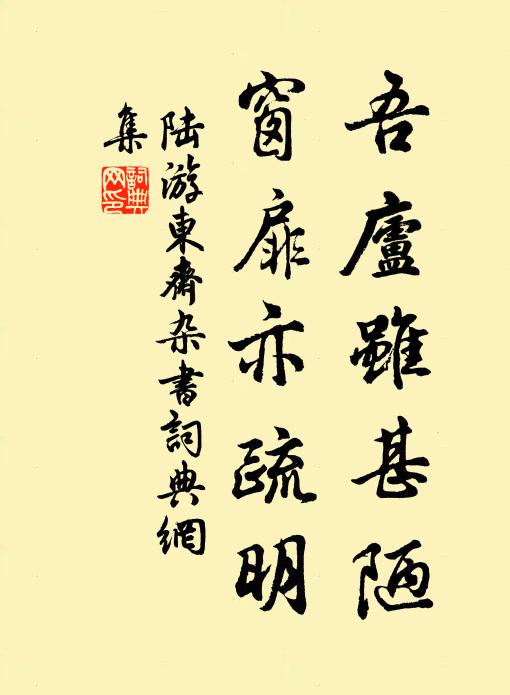 吾廬雖甚陋
窗扉亦疏明
陆游東齋杂書詞典網
集
詞典網印